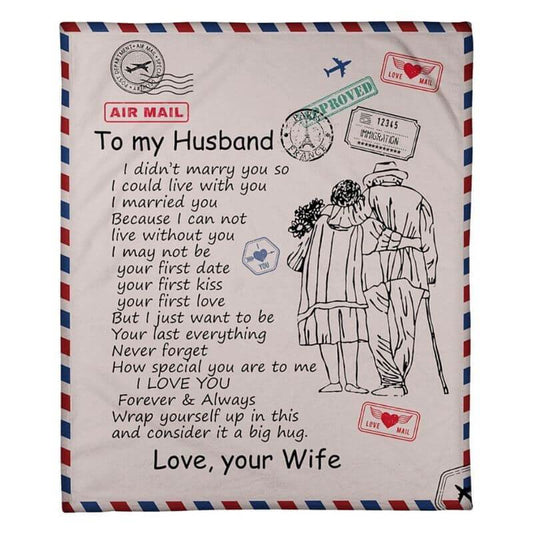 POST DEPARTMENT • AIR MAIL • SPECIAL
AIR MAIL
APPROVED
LOVE MAIL
PARIS
FRANCE
12345
IMMIGRATION
To my Husband
I didn't marry you so
I could live with you
I married you
Because I can not
live without you
I may not be
your first date
your first kiss
your first love
But I just want to be
Your last everything
Never forget
How special you are to me
I LOVE YOU
Forever & Always
Wrap yourself up in this
and consider it a big hug.
Love, your Wife
I
YOU
LOVE MAIL